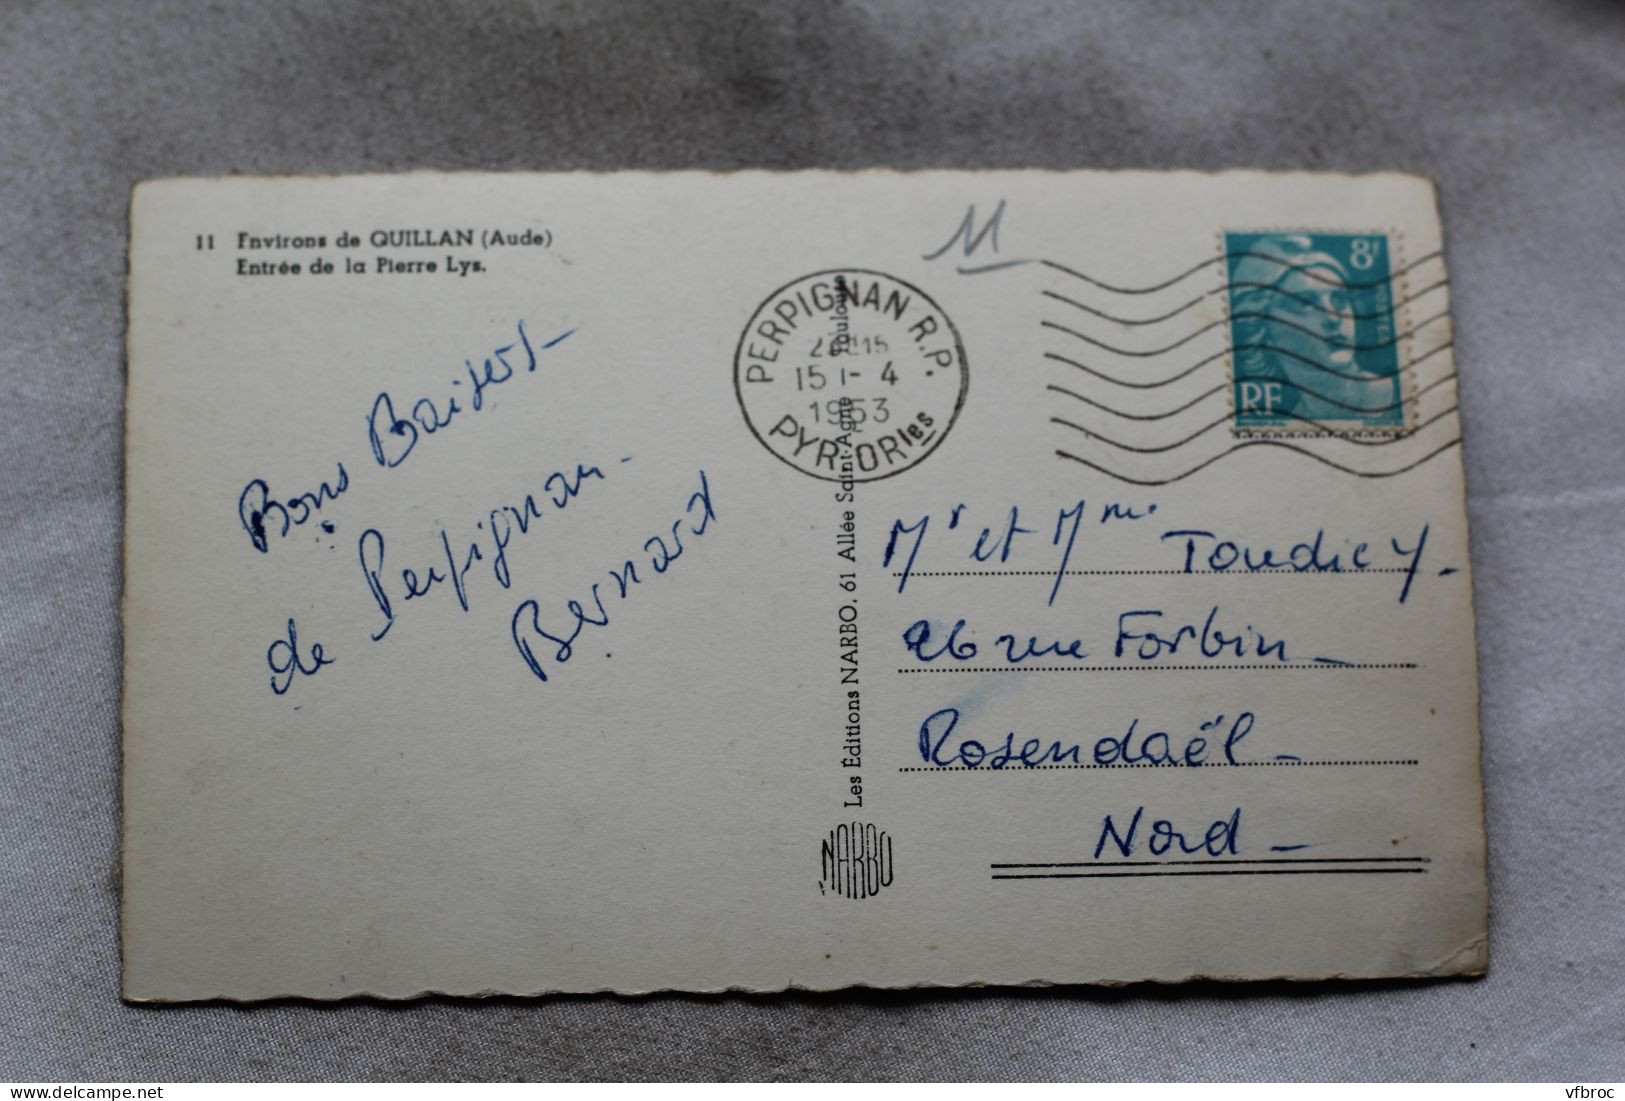 11 Environs de QUILLAN (Aude)
Entrée de la Pierre Lys.
Bons Baisers -
de Perpignan -
Bernard
11
PERPIGNAN R.P.
15 1 - 4
1953
PYR. ORles
8f
RF
Les Éditions NARBO, 61 Allée Saint-Agne Toulouse
NARBO
Mr et Mme Toudic Y.
26 rue Forbin -
Rosendaël -
Nord -
delcampe.net
vfbroc